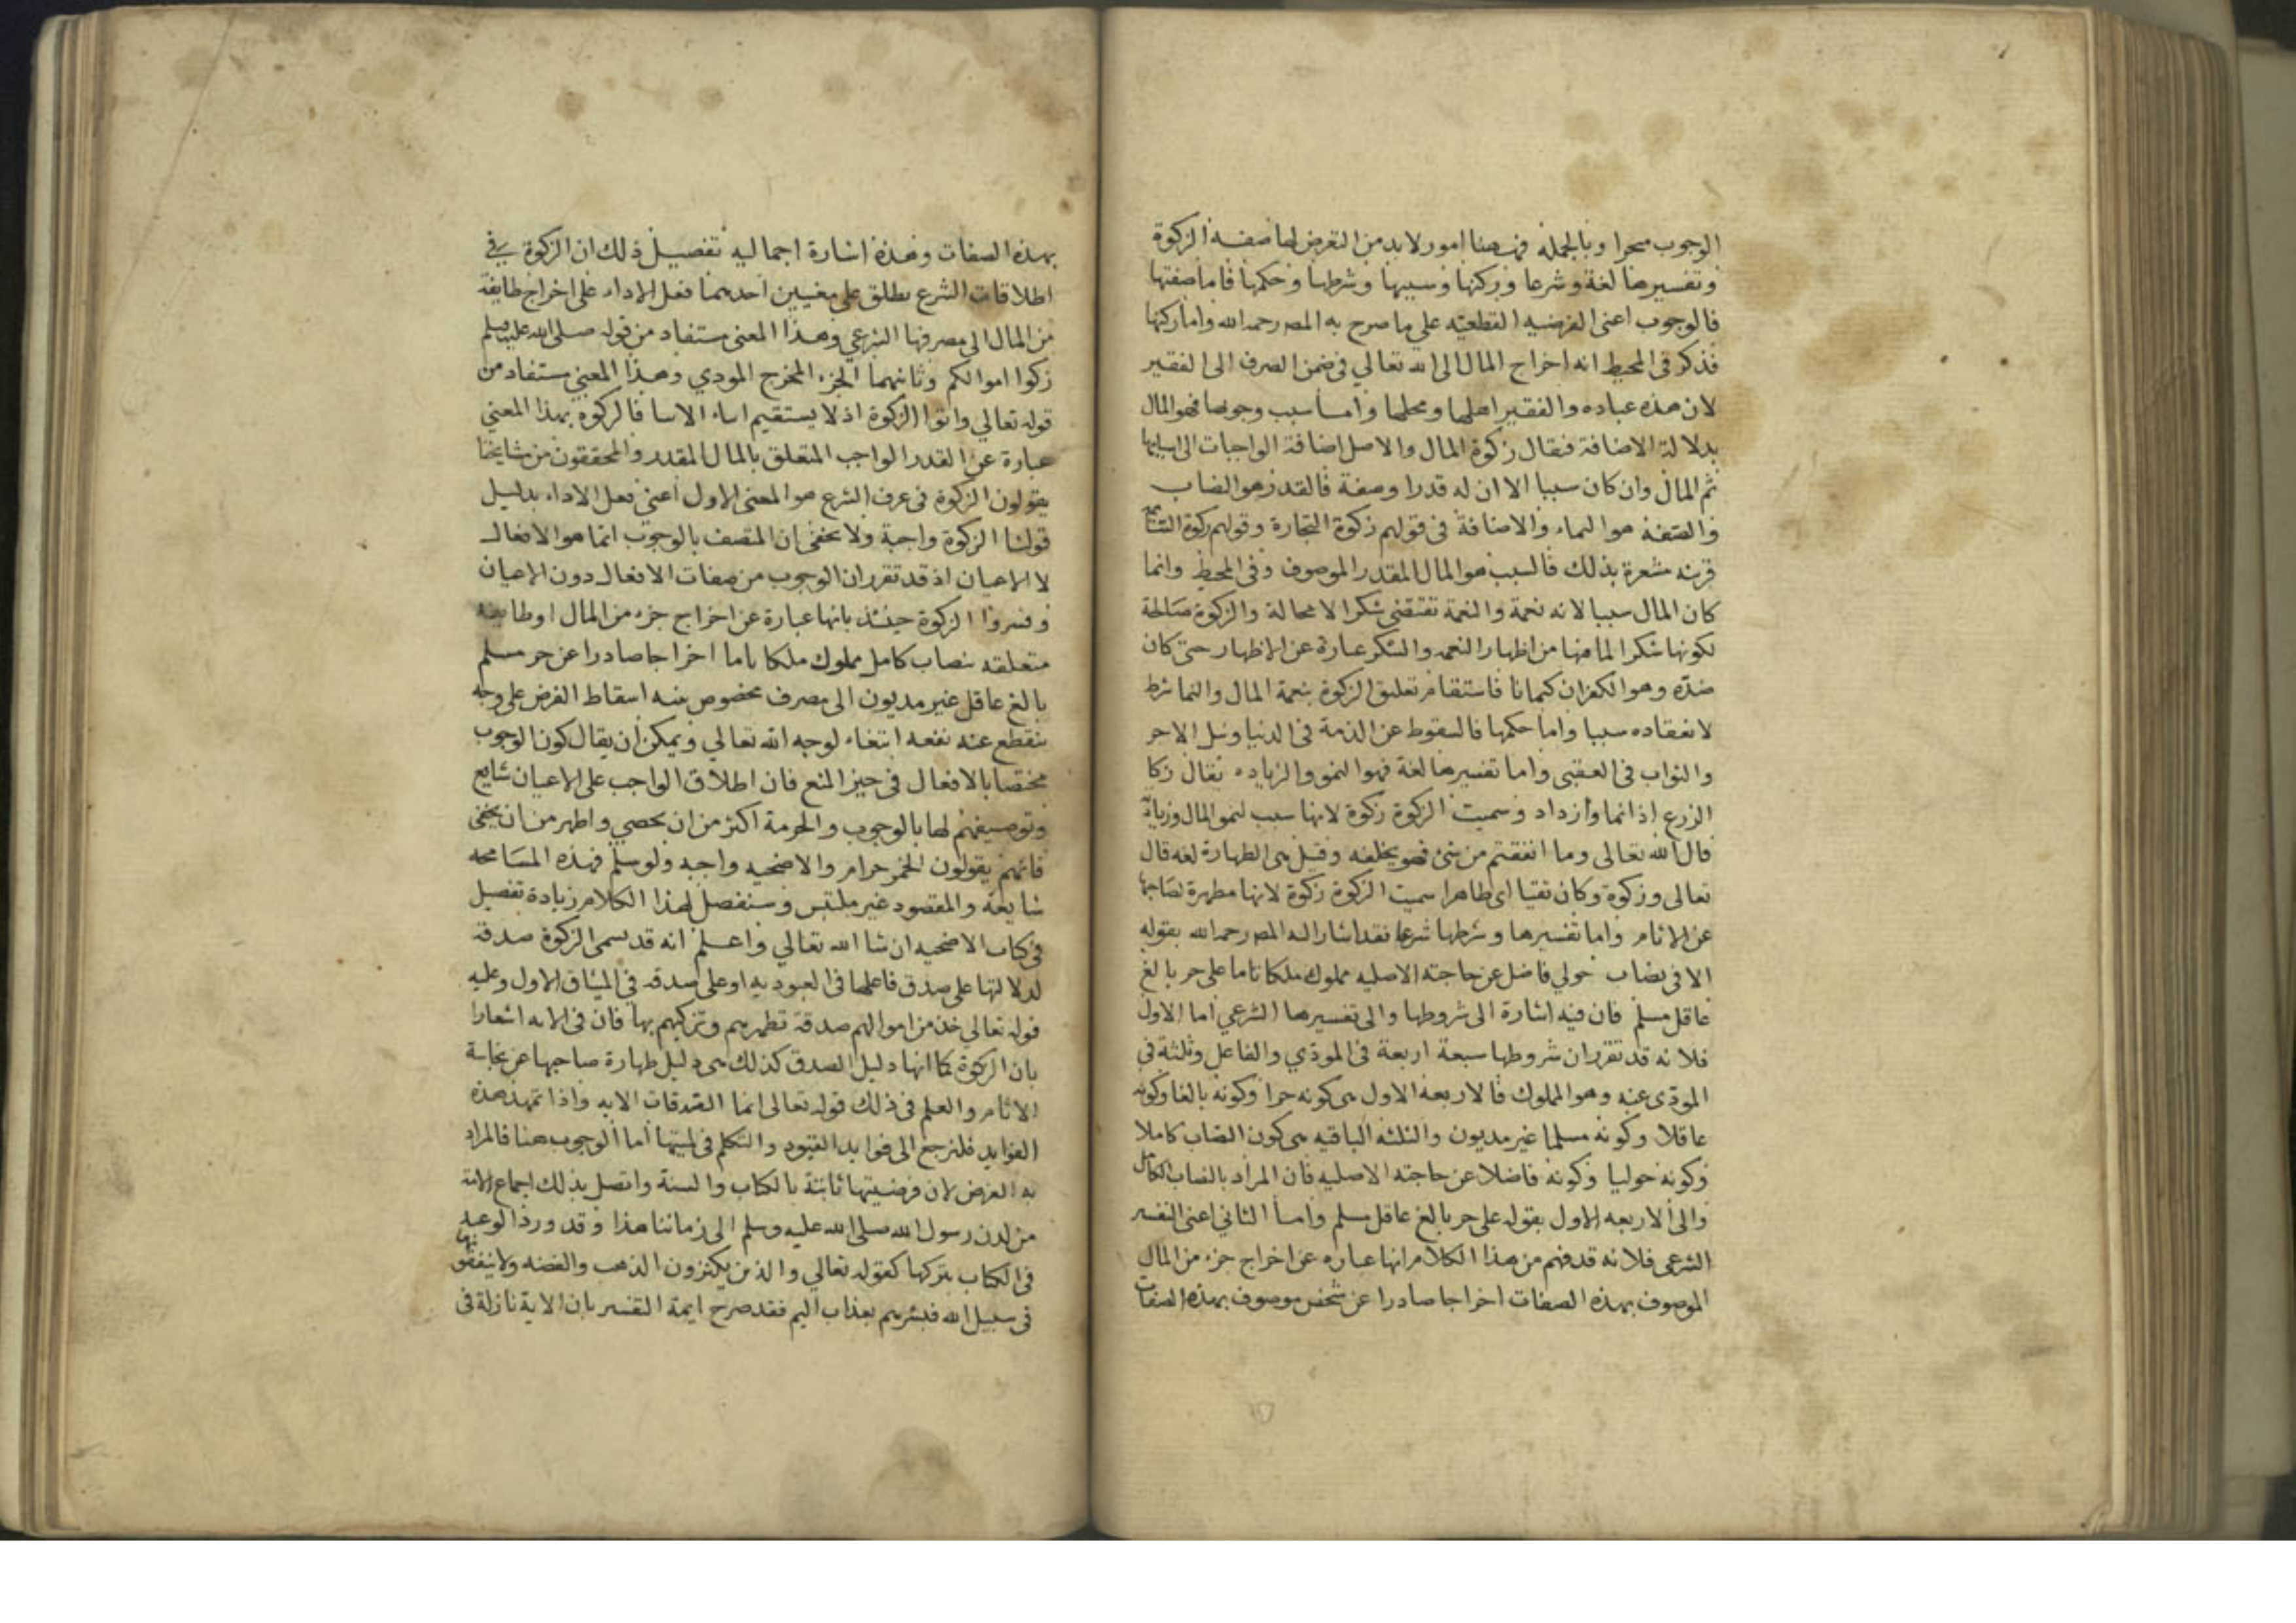 الوجوب محرا وبالجمله فههنا امور لابد من التعرض لها صفه الزكوة
وتفسيرها لغة وشرعا وركنها وسببها وشرطها وحكمها فاما صفتها
فالوجوب اعنى الفرضيه القطعيه على ما صرح به المصـ رحمه الله واما ركنها
فذكر فى المحيط انه اخراج المال الى الله تعالي فى ضمن الصرف الى الفقير
لان هذه عباده والفقير اهلها ومحلها واما سبب وجوبها فهو المال
بدلالة الاضافة فيقال زكوة المال والاصل اضافة الواجبات الى اسبابها
ثم المال وان كان سببا الا ان له قدرا وصفة فالقدر هو النصاب
والصفة هو النماء والاضافة فى قولهم زكوة التجارة وقولهم زكوة السائمة
قرينه مشعرة بذلك فالسبب هو المال المقدر الموصوف وفى المحيط وانما
كان المال سببا لانه نعمة والنعمة تقتضى شكرا لا محالة والزكوة صالحة
لكونها شكرا لما فيها من اظهار النعمه والشكر عبارة عن الاظهار حتى كان
ضده وهو الكفران كتمانا فاستقام تعليق الزكوة بنعمة المال والنما شرط
لانعقاده سببا واما حكمها فالسقوط عن الذمة فى الدنيا ونيل الاجر
والثواب فى العقبى واما تفسيرها لغة فهو النمو والزياده يقال زكا
الزرع اذا نما وازداد وسميت الزكوة زكوة لانها سبب لنمو المال وزيادته
قال الله تعالى وما انفقتم من شئ فهو يخلفه وقيل هى الطهارة لغه قال
تعالى وزكوة وكان تقيا اى طاهرا سميت الزكوة زكوة لانها مطهرة لصاحبها
عن الاثام واما تفسيرها وشرطها شرعا فقد اشار اليه المصـ رحمه الله بقوله
الا فى نصاب حولي فاضل عن حاجته الاصليه مملوك ملكا تاما على حر بالغ
عاقل مسلم فان فيه اشارة الى شروطها والى تفسيرها الشرعي اما الاول
فلانه قد تقرر ان شروطها سبعة اربعة فى المودي والفاعل وثلثة فى
المودى عنه وهو المملوك فالاربعة الاول هى كونه حرا وكونه بالغا وكونه
عاقلا وكونه مسلما غير مديون والثلثه الباقيه هى كون النصاب كاملا
وكونه حوليا وكونه فاضلا عن حاجته الاصليه فان المراد بالنصاب الكامل
والى الاربعه الاول بقوله على حر بالغ عاقل مسلم واما الثاني اعنى التفسير
الشرعى فلانه قد فهم من هذا الكلام انها عباره عن اخراج جزء من المال
الموصوف بهذه الصفات اخراجا صادرا عن شخص موصوف بهذه الصفات
بهذه الصفات وهذه اشارة اجماليه تفصيل ذلك ان الزكوة في
اطلاقات الشرع يطلق على معنيين احدهما فعل الاداء على اخراج طايفة
من المال الى مصرفها الشرعي وهذا المعنى مستفاد من قوله صلى الله عليه وسلم
زكوا اموالكم وثانيهما الجزء المخرج المودي وهذا المعنى مستفاد من
قوله تعالي واتوا الزكوة اذ لا يستقيم اساء الاسا فالزكوه بهذا المعني
عبارة عن القدر الواجب المتعلق بالمال المقدر والمحققون من مشايخنا
يقولون الزكوة فى عرف الشرع هو المعنى الاول اعنى فعل الاداء بدليل
قولنا الزكوة واجبة ولا يخفى ان المتصف بالوجوب انما هو الافعال
لا الاعيان اذ قد تقرر ان الوجوب من صفات الافعال دون الاعيان
وفسروا الزكوة حينئذ بانها عبارة عن اخراج جزء من المال او طايفه
متعلقه بنصاب كامل مملوك ملكا تاما اخراجا صادرا عن حر مسلم
بالغ عاقل غير مديون الى مصرف مخصوص فيه اسقاط الفرض على وجه
ينقطع عنه نفعه ابتغاء لوجه الله تعالي ويمكن ان يقال كون الوجوب
مختصا بالافعال فى حيز المنع فان اطلاق الواجب على الاعيان شايع
وتوصيفهم لها بالوجوب والحرمة اكثر من ان يحصي واظهر من ان يخفى
فانهم يقولون الخمر حرام والاضحيه واجبه ولو سلم فهذه المسامحه
شايعة والمقصود غير ملتبس وسنفصل لهذا الكلام زيادة تفصيل
فى كتاب الاضحيه ان شا الله تعالي واعلم انه قد يسمى الزكوة صدقة
لدلالتها على صدق فاعلها فى العبوديه او على صدقه فى الميثاق الاول وعليه
قوله تعالي خذ من اموالهم صدقة تطهرهم وتزكيهم بها فان فى الايه اشعارا
بان الزكوة كما انها دليل الصدق كذلك هى دليل طهارة صاحبها عن نجاسة
الاثام والعلم فى ذلك قوله تعالى انما الصدقات الايه واذا تمهد هذه
الفوايد فلنرجع الى فوايد القيود والتكلم فى لميتها اما الوجوب هنا فالمراد
به الفرض لان فرضيتها ثابتة بالكتاب والسنة واتصل بذلك اجماع الامة
من لدن رسول الله صلى الله عليه وسلم الى زماننا هذا وقد ورد الوعيد
فى الكتاب بتركها كقوله تعالي والذين يكنزون الذهب والفضه ولا ينفقونها
فى سبيل الله فبشرهم بعذاب اليم فقد صرح ايمة التفسير بان الاية نازلة فى